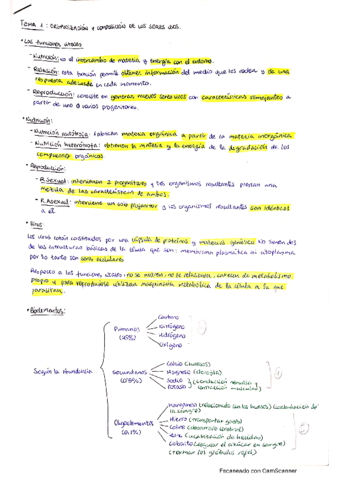 TEMA 1: ORGANIZACIÓN Y COMPOSICIÓN DE LOS SERES VIVOS.
• Las funciones vitales
- Nutrición: es el intercambio de materia y energía con el entorno.
- Relación: esta función permite obtener información del medio que les rodea y da una
respuesta adecuada en cada momento.
- Reproducción: consiste en generar nuevos seres vivos con características semejantes a
partir de uno o varios progenitores.
• Nutrición:
- Nutrición autótrofa: fabrican materia orgánica a partir de la materia inorgánica
- Nutrición heterótrofa: obtienen la materia y la energía de la degradación de los
compuestos orgánicos
• Reproducción:
- R. Sexual: intervienen 2 progenitores y los organismos resultantes presentan una
mezcla de las características de ambos.
- R. Asexual: interviene un solo progenitor y los organismos resultantes son idénticos
a él
• Virus
Los virus están constituidos por una cápsula de proteínas y material genético. No tienen dos
de las estructuras básicas de la célula que son: membrana plasmática ni citoplasma
por lo tanto son acelulares
Respecto a las funciones vitales: no se nutren, no se relacionan, carecen de metabolismo
propio y para reproducirse utilizan maquinaria metabólica de la célula a la que
parasitan.
• Bioelementos:
Según la abundancia
Primarios
(95%)
Carbono
Nitrógeno
Hidrógeno
Oxígeno
Secundarios
(4'9%)
Calcio (huesos)
Magnesio
Sodio
Potasio
(conducción nerviosa y
contracción muscular)
Oligoelementos
(0.1%)
Manganeso (relacionado con los huesos)
la sangre)
Hierro (transportar
Cobre
Zinc (cicatrización de heridas)
Cobalto
(formar los glóbulos rojos)
Escaneado con CamScanner